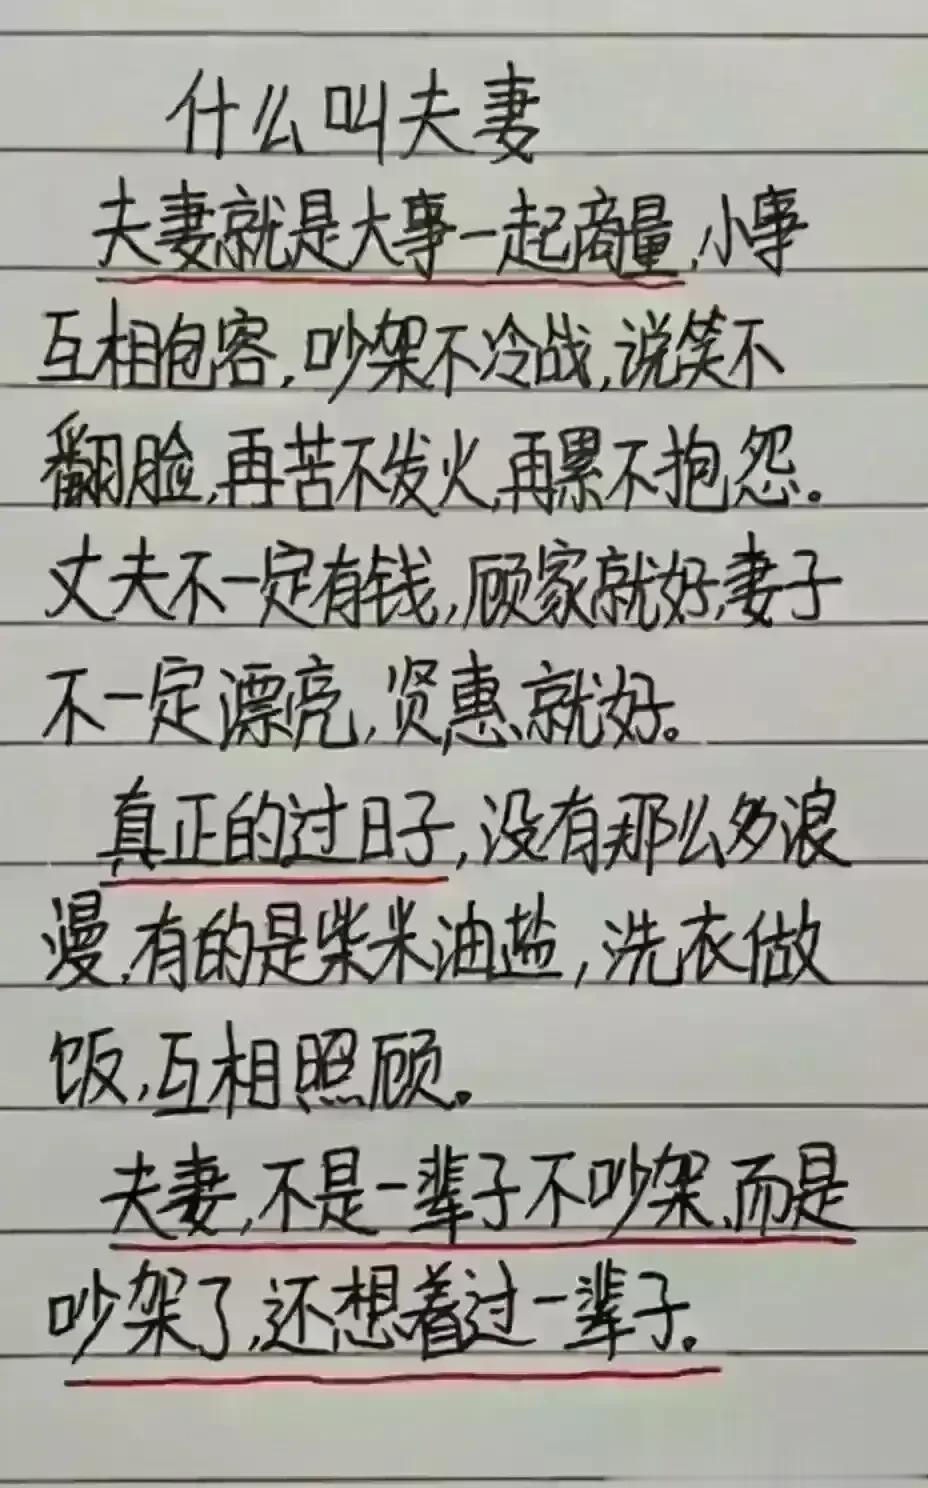 什么叫夫妻
夫妻就是大事一起商量,小事
互相包容,吵架不冷战,说笑不
翻脸,再苦不发火,再累不抱怨。
丈夫不一定有钱,顾家就好,妻子
不一定漂亮,贤惠就好。
真正的过日子,没有那么多浪
漫,有的是柴米油盐,洗衣做
饭,互相照顾。
夫妻,不是一辈子不吵架,而是
吵架了,还想着过一辈子。